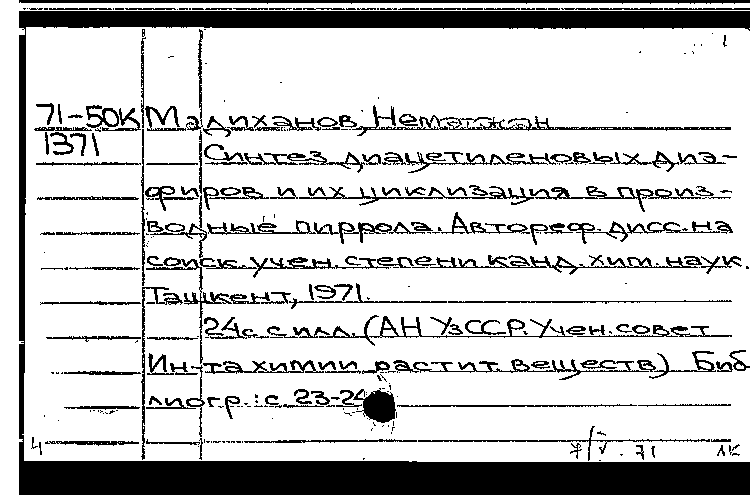 71-50К Мадиханов, Нематжан
1371 Синтез диацетиленовых диэ-
фиров и их циклизация в произ-
водные пиррола. Автореф. дисс. на
соиск. учен. степени канд. хим. наук.
Ташкент, 1971.
24с. с илл. (АН УзССР. Учен. совет
Ин-та химии растит. веществ) Биб
лиогр.: с. 23-24
4 7/V. 71 ЛК